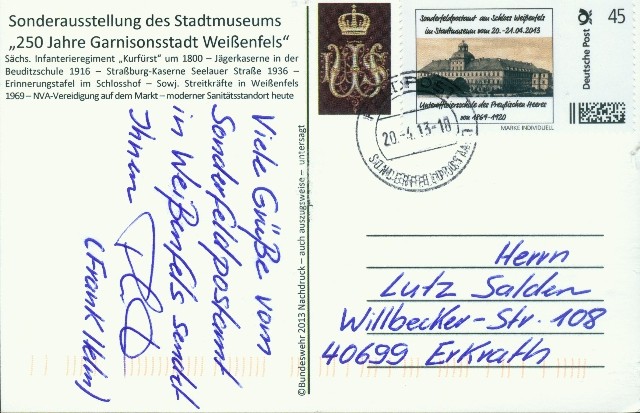 Sonderausstellung des Stadtmuseums
„250 Jahre Garnisonsstadt Weißenfels“
Sächs. Infanterieregiment „Kurfürst“ um 1800 – Jägerkaserne in der
Beuditzschule 1916 – Straßburg-Kaserne Seelauer Straße 1936 –
Erinnerungstafel im Schlosshof – Sowj. Streitkräfte in Weißenfels
1969 – NVA-Vereidigung auf dem Markt – moderner Sanitätsstandort heute
Viele Grüße vom
Sonderfeldpostamt
in Weißenfels sendet
Ihnen
(Frank Helm)
©Bundeswehr 2013 Nachdruck – auch auszugsweise – untersagt
Sonderfeldpostamt am Schloss Weißenfels
im Stadtmuseum vom 20.-21.04.2013
Unteroffiziersschule des Preußischen Heeres
von 1869-1920
MARKE INDIVIDUELL
Deutsche Post
45
20.-4.13-10
Herrn
Lutz Salden
Willbecker-Str. 108
40699 Erkrath